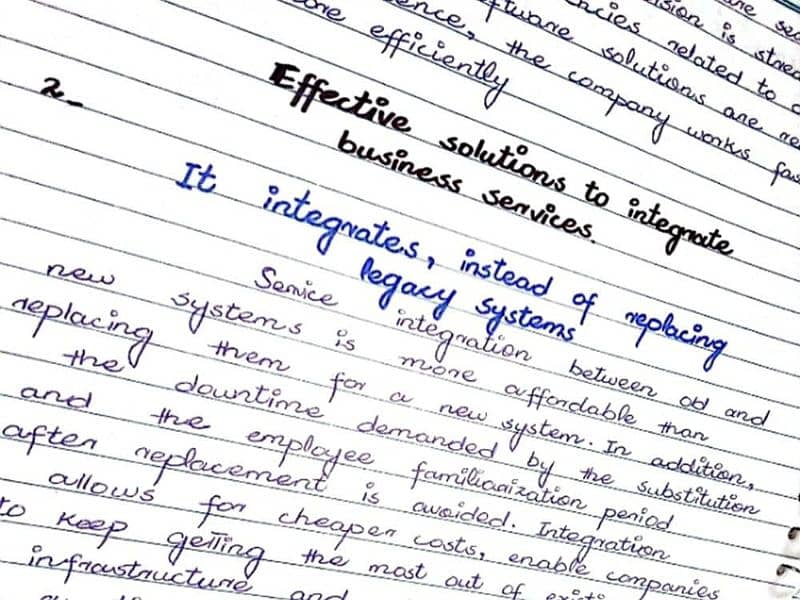 is stored
ence, software solutions are
related to
efficiently
the company works
2-
Effective solutions to integrate
business services.
It integrates, instead of replacing
legacy systems
Service integration between old and
new systems is more affordable than
replacing them for a new system. In addition,
the downtime demanded by the substitution
and the employee familiarization period
after replacement is avoided. Integration
allows for cheaper costs, enable companies
to keep getting the most out of
infraustructure and